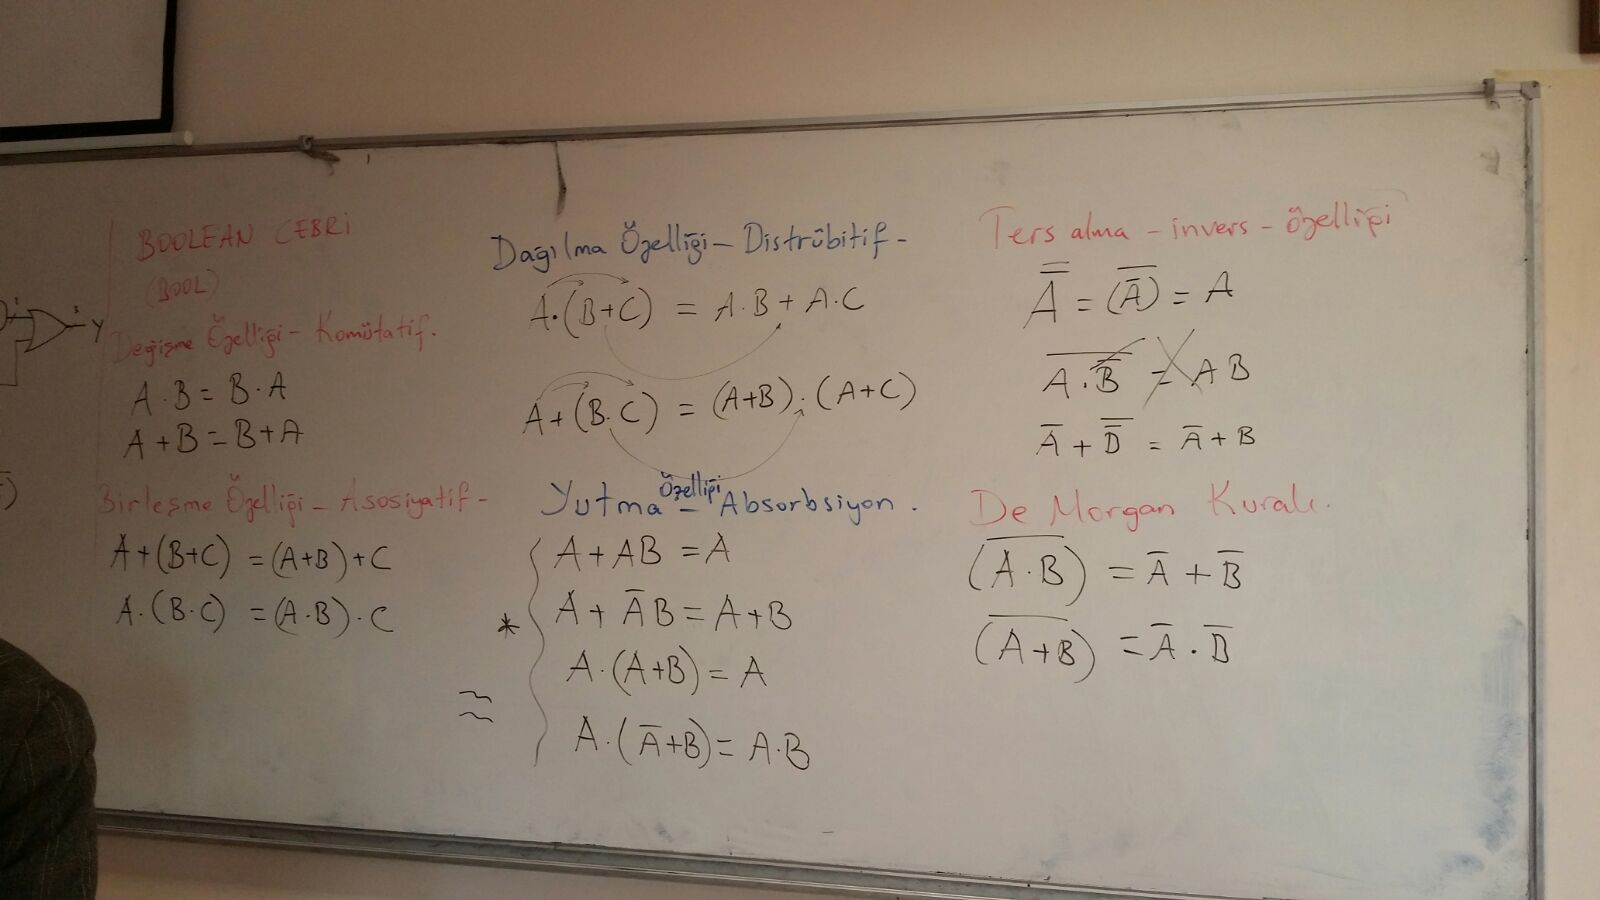 BOOLEAN CEBRİ
(BOOL)
Değişme Özelliği - Komütatif.
A · B = B · A
A + B = B + A
Birleşme Özelliği - Asosiyatif -
A + (B + C) = (A + B) + C
A · (B · C) = (A · B) · C
Y
Dağılma Özelliği - Distrübitif -
A · (B + C) = A · B + A · C
A + (B · C) = (A + B) · (A + C)
Yutma Özelliği - Absorbsiyon.
A + AB = A
* A + A̅ B = A + B
A · (A + B) = A
≈
A · (A̅ + B) = A · B
Ters alma - invers - özelliği
A̿ = (A̿) = A
A · B̅ = A B
A̅ + B̿ = A̅ + B
De Morgan Kuralı.
(A̅ ·̅ B̅) = A̅ + B̅
(A̅ +̅ B̅) = A̅ · B̅